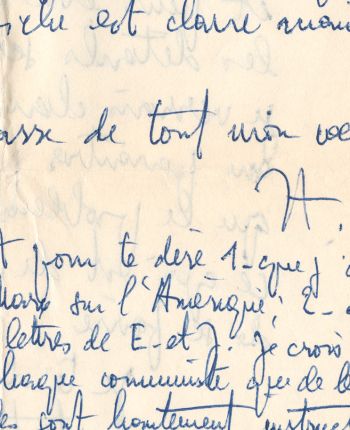 est claire mais
asse de tout mon
H.
pour te dire 1- que j'
sur l'Amérique, 2-
lettres de E- et J. je crois
chaque communiste que de
sont hautement